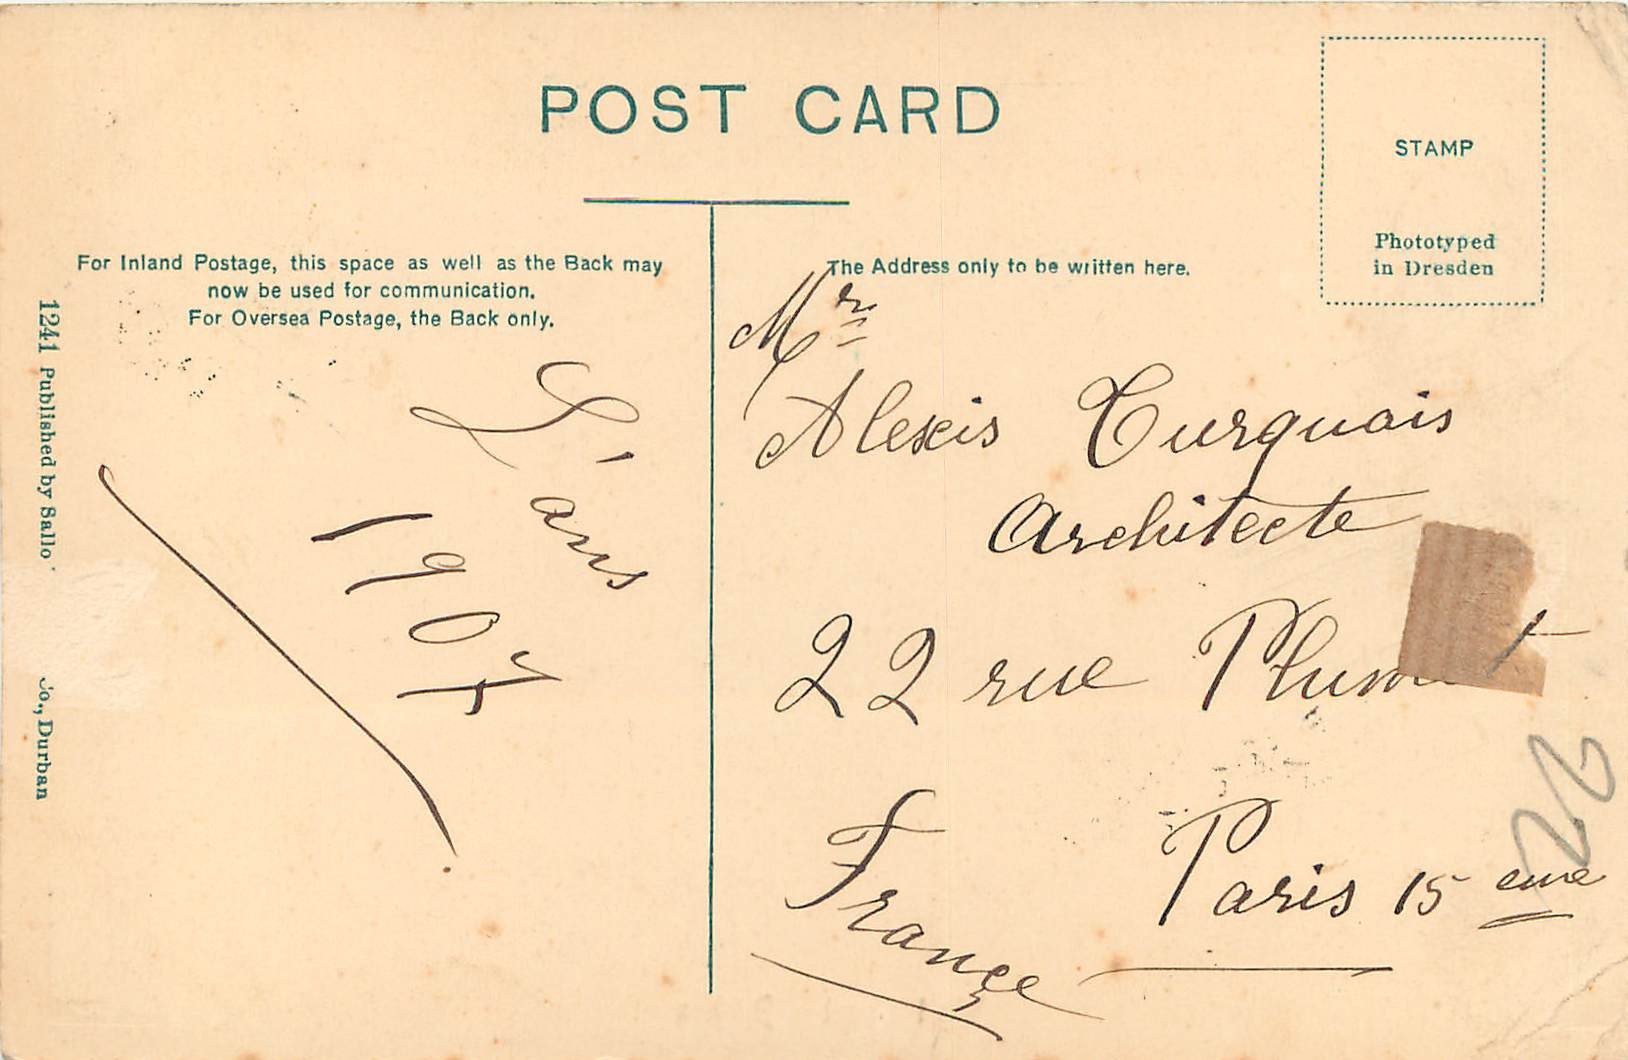 POST CARD
STAMP
Phototyped
in Dresden
For Inland Postage, this space as well as the Back may
now be used for communication.
For Oversea Postage, the Back only.
The Address only to be written here.
1241 Published by Sallo
Co., Durban
L'ans
1907
Mr
Alexis Turquais
Architecte
22 rue
Paris 15 eme
France
22